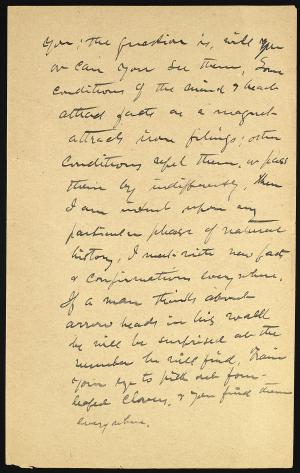 you; the question is, will you
or can you see them. Some
conditions of the mind & heart
attract facts as a magnet
attracts iron filings; other
conditions repel them, or pass
them by indifferently. When
I am intent upon any
particular phase of natural
history, I meet with new facts
& confirmations everywhere.
If a man thinks about
arrow heads in his walk
he will be surprised at the
number he will find. Train
your eye to pick out four-
leafed clovers, & you find them
everywhere.